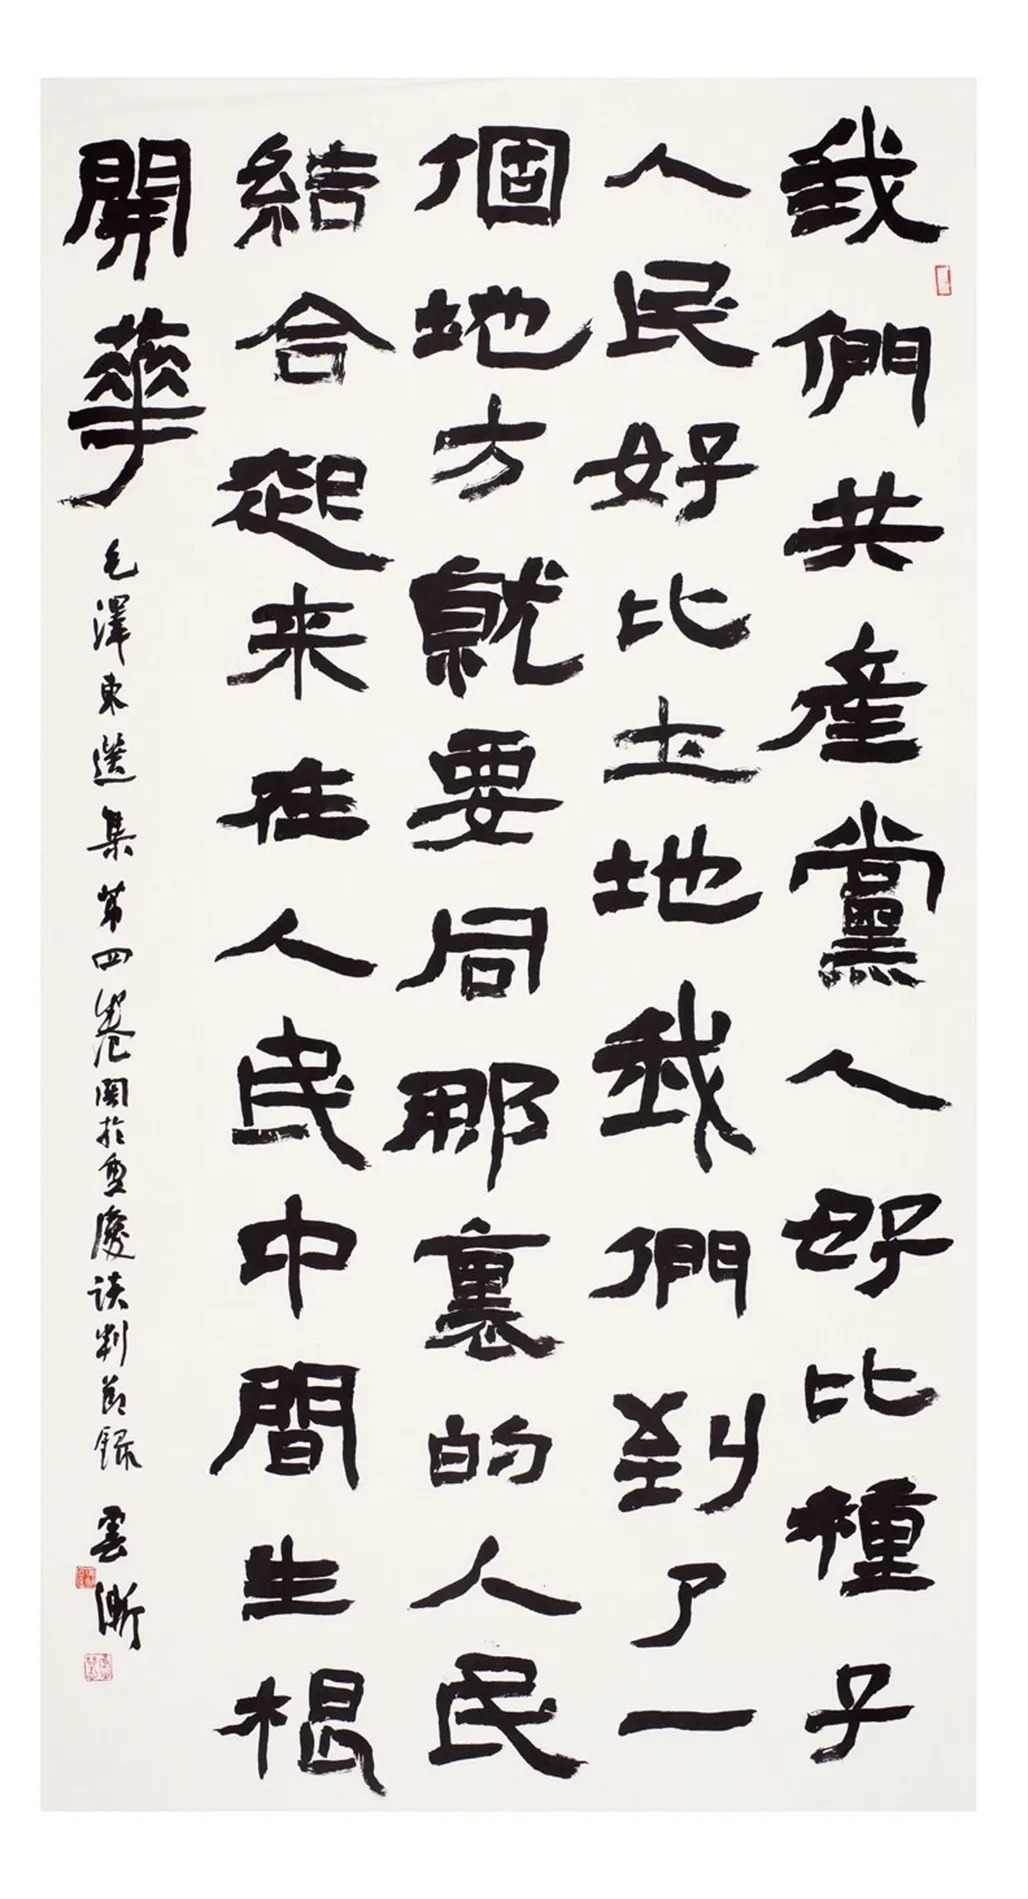 我們共産黨人好比種子
人民好比土地我們到了一
個地方就要同那裏的人民
結合起来在人民中間生根
開華
毛澤東選集第四卷關於重慶談判節錄 雲